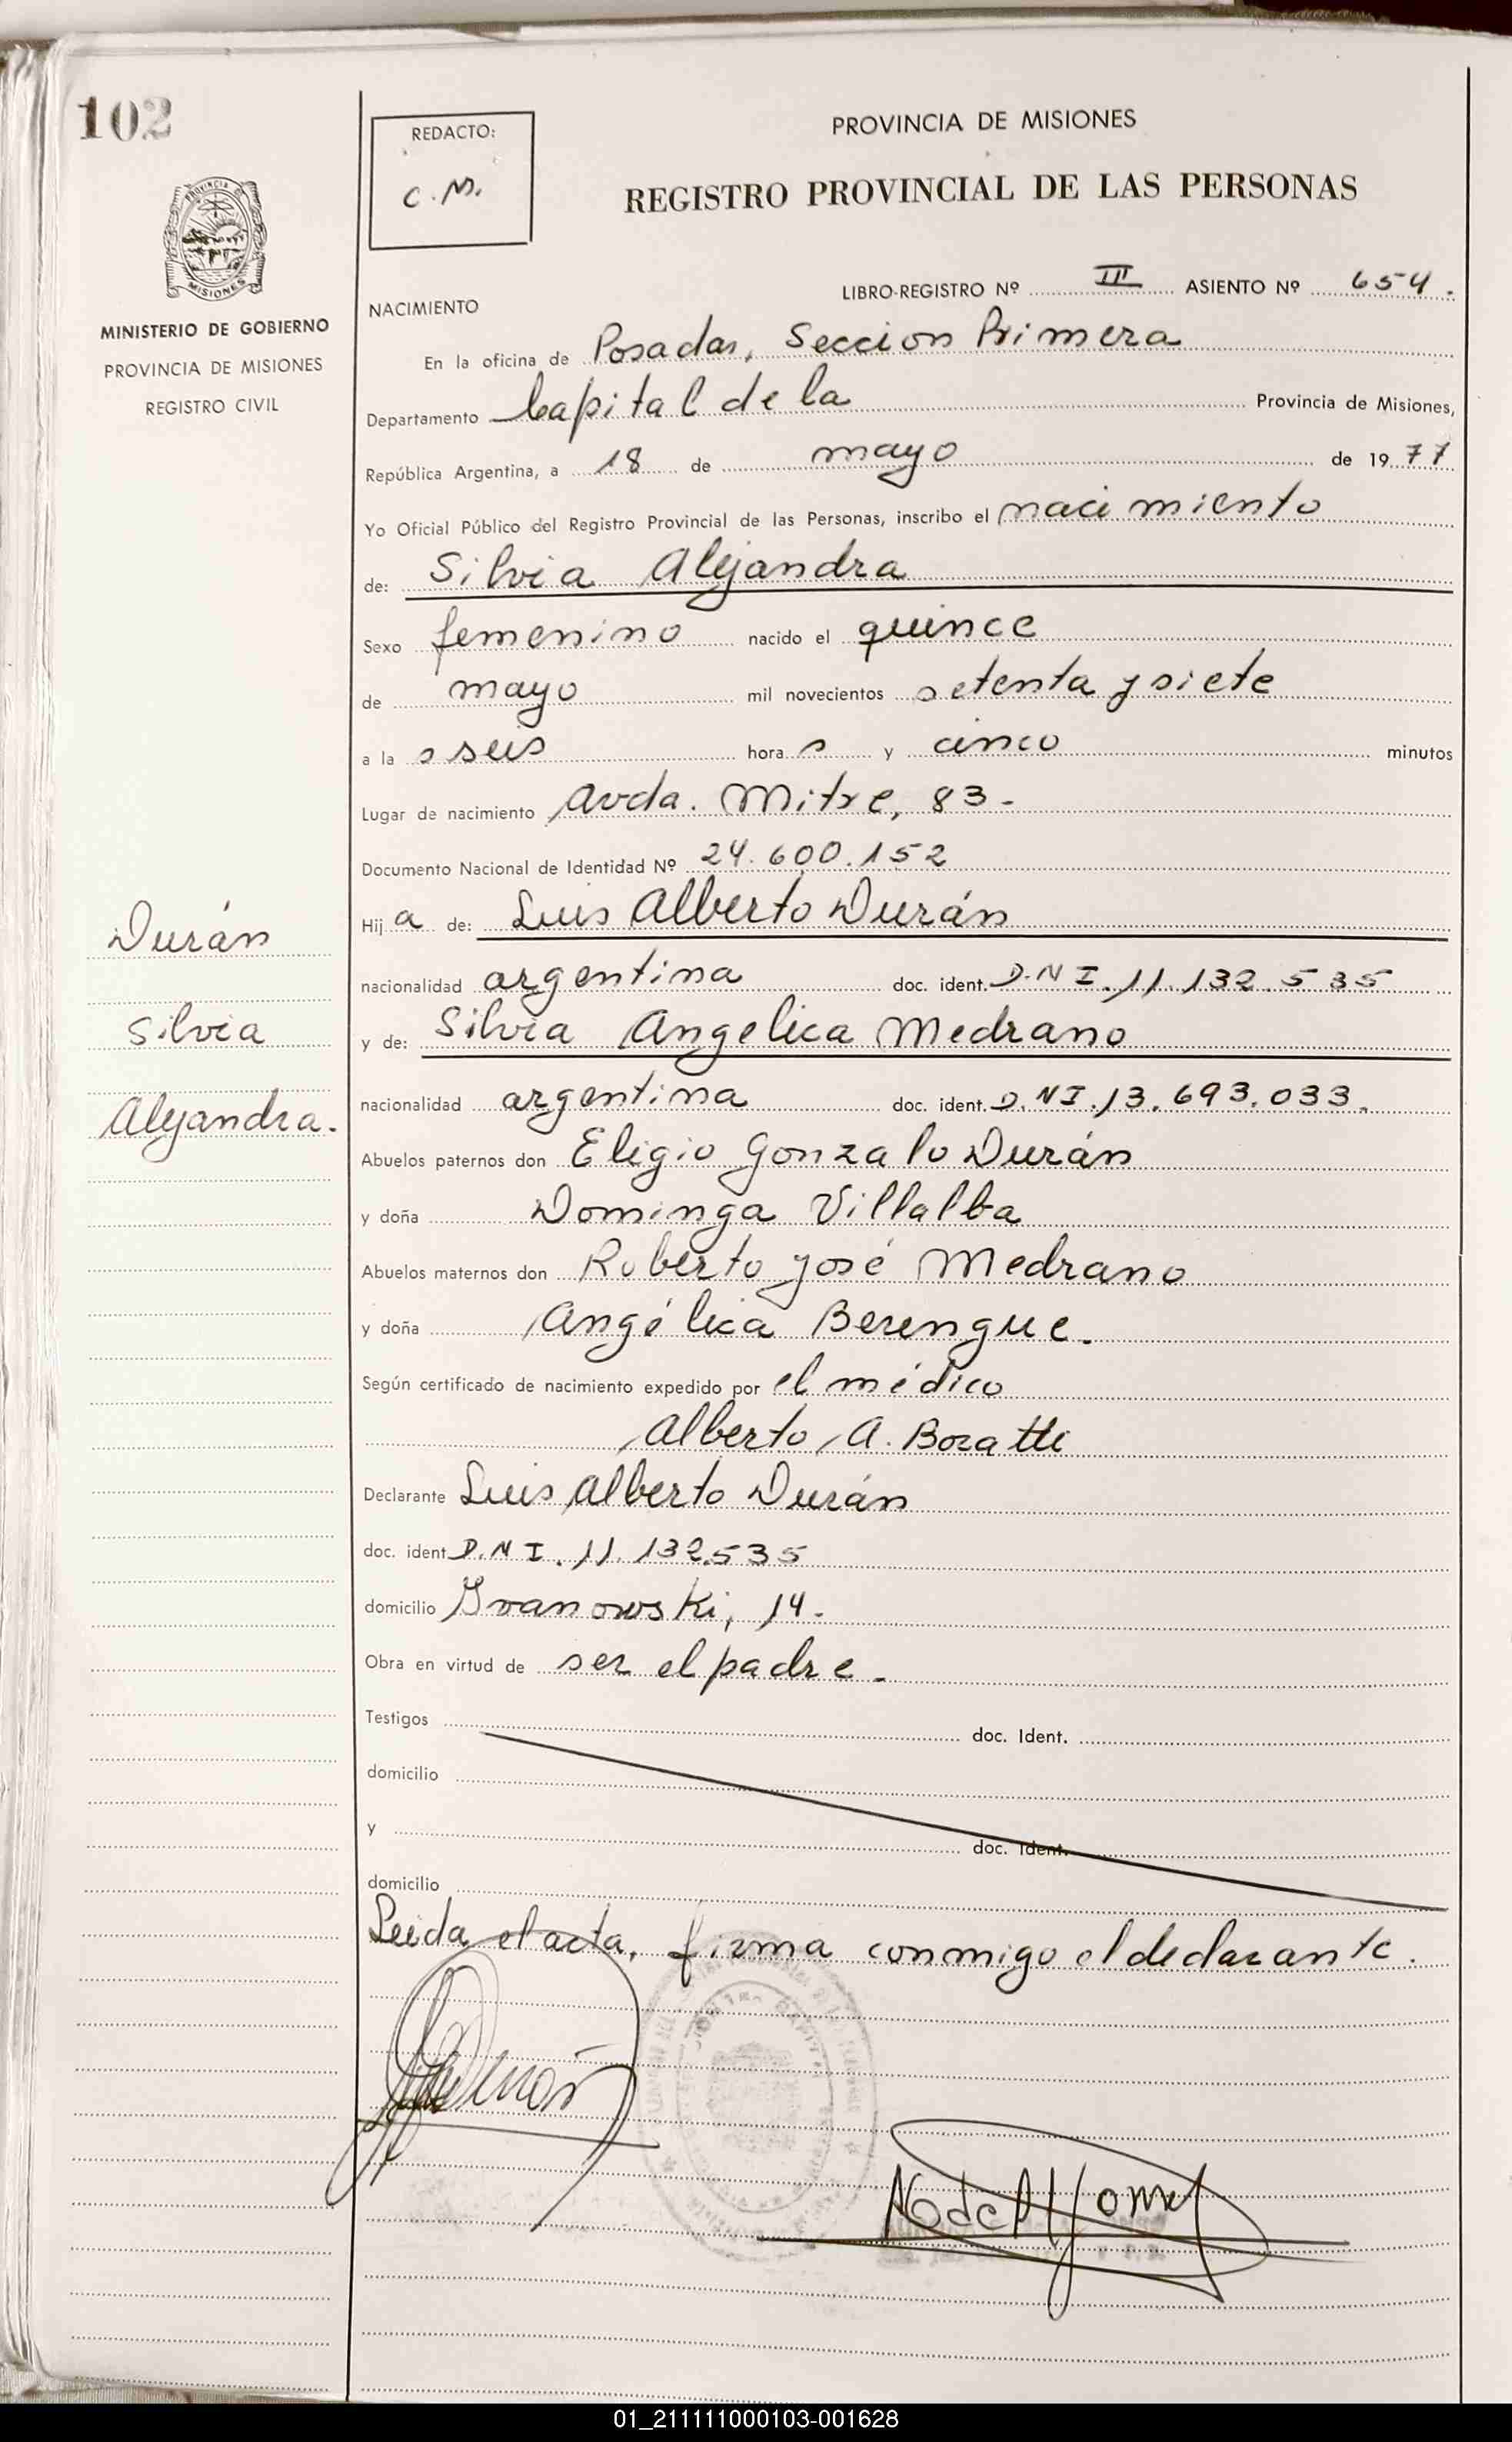 102
REDACTO:
C.M.
PROVINCIA DE MISIONES
REGISTRO PROVINCIAL DE LAS PERSONAS
PROVINCIA DE
MISIONES
MINISTERIO DE GOBIERNO
PROVINCIA DE MISIONES
REGISTRO CIVIL
LIBRO-REGISTRO Nº III ASIENTO Nº 654.
NACIMIENTO
En la oficina de Posadas, Seccion Primera
Departamento Capital de la Provincia de Misiones,
República Argentina, a 18 de mayo de 1977
Yo Oficial Público del Registro Provincial de las Personas, inscribo el nacimiento
de: Silvia Alejandra
Sexo femenino nacido el quince
de mayo mil novecientos setenta y siete
a la s seis hora s y cinco minutos
Lugar de nacimiento Avda. Mitre, 83-
Documento Nacional de Identidad Nº 24.600.152
Hij a de: Luis Alberto Durán
nacionalidad argentina doc. ident. D.N I. 11.132.535
y de: Silvia Angelica Medrano
nacionalidad argentina doc. ident. D.NI.13.693.033.
Abuelos paternos don Eligio Gonzalo Durán
y doña Dominga Villalba
Abuelos maternos don Roberto José Medrano
y doña Angélica Berengue.
Según certificado de nacimiento expedido por el médico
Alberto A. Boratti
Declarante Luis Alberto Durán
doc. ident D.N I. 11.132.535
domicilio Ivanowski, 14-
Obra en virtud de ser el padre-
Testigos doc. Ident.
domicilio
y doc. Ident.
domicilio
Leida el acta, firma conmigo el declarante.
Durán
Silvia
Alejandra.
01_211111000103-001628